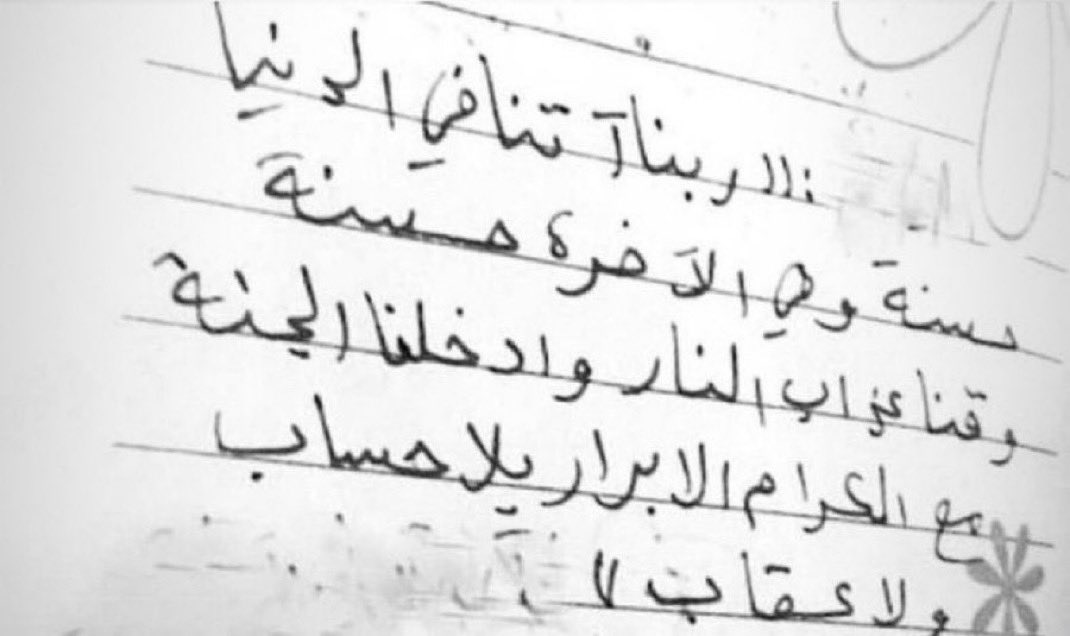 :"ربنا آتنا في الدنيا
حسنة وفي الآخرة حسنة
وقنا عذاب النار وادخلنا الجنة
مع الكرام الابرار بلا حساب
ولا عقاب"